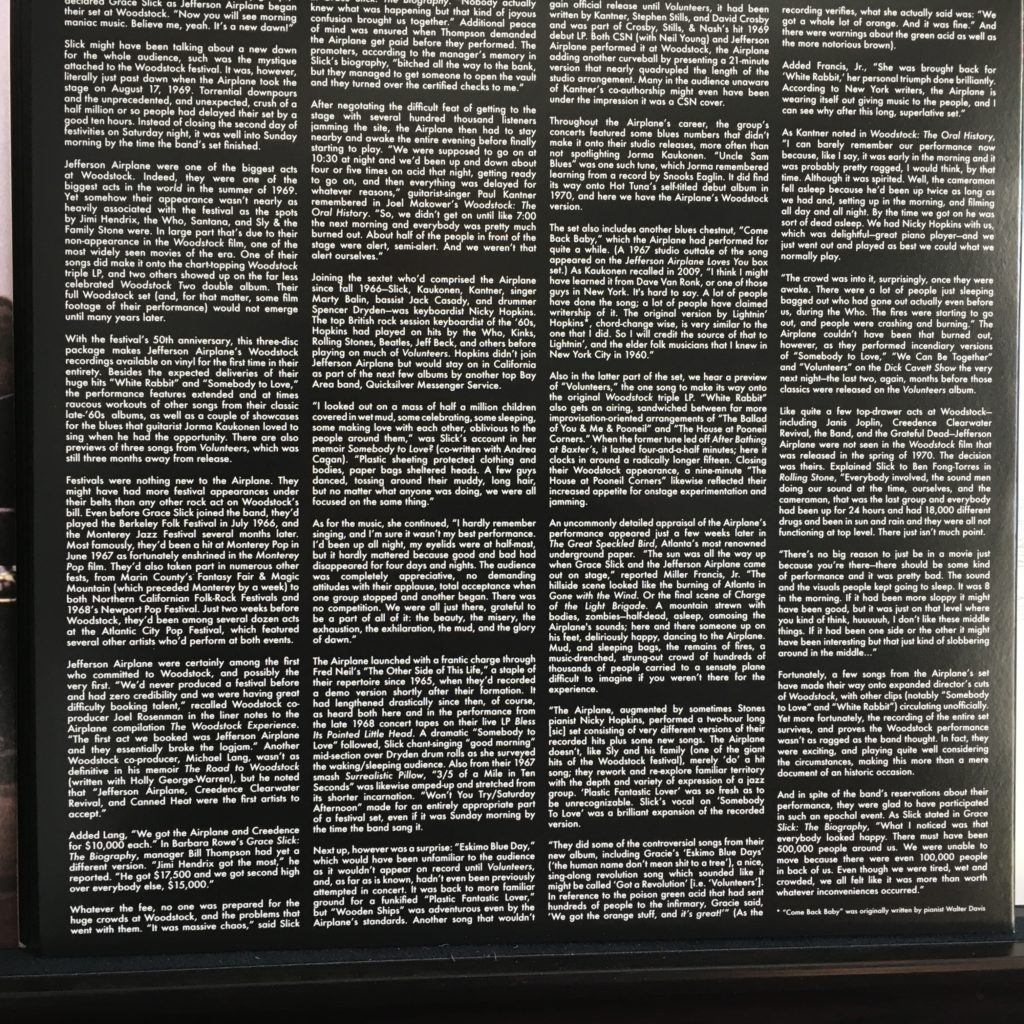 declared Grace Slick as Jefferson Airplane began
their set at Woodstock. "Now you will see morning
maniac music. Believe me, yeah. It's a new dawn!"
Slick might have been talking about a new dawn
for the whole audience, such was the mystique
attached to the Woodstock festival. It was, however,
literally just past dawn when the Airplane took the
stage on August 17, 1969. Torrential downpours
and the unprecedented, and unexpected, crush of a
half million or so people had delayed their set by a
good ten hours. Instead of closing the second day of
festivities on Saturday night, it was well into Sunday
morning by the time the band's set finished.
Jefferson Airplane were one of the biggest acts
at Woodstock. Indeed, they were one of the
biggest acts in the world in the summer of 1969.
Yet somehow their appearance wasn't nearly as
heavily associated with the festival as the spots
by Jimi Hendrix, the Who, Santana, and Sly & the
Family Stone were. In large part that's due to their
non-appearance in the Woodstock film, one of the
most widely seen movies of the era. One of their
songs did make it onto the chart-topping Woodstock
triple LP, and two others showed up on the far less
celebrated Woodstock Two double album. Their
full Woodstock set (and, for that matter, some film
footage of their performance) would not emerge
until many years later.
With the festival's 50th anniversary, this three-disc
package makes Jefferson Airplane's Woodstock
recordings available on vinyl for the first time in their
entirety. Besides the expected deliveries of their
huge hits "White Rabbit" and "Somebody to Love,"
the performance features extended and at times
raucous workouts of other songs from their classic
late-'60s albums, as well as a couple of showcases
for the blues that guitarist Jorma Kaukonen loved to
sing when he had the opportunity. There are also
previews of three songs from Volunteers, which was
still three months away from release.
Festivals were nothing new to the Airplane. They
might have had more festival appearances under
their belts than any other rock act on Woodstock's
bill. Even before Grace Slick joined the band, they'd
played the Berkeley Folk Festival in July 1966, and
the Monterey Jazz Festival several months later.
Most famously, they'd been a hit at Monterey Pop in
June 1967 as fortunately enshrined in the Monterey
Pop film. They'd also taken part in numerous other
fests, from Marin County's Fantasy Fair & Magic
Mountain (which preceded Monterey by a week) to
both Northern Californian Folk-Rock Festivals and
1968's Newport Pop Festival. Just two weeks before
Woodstock, they'd been among several dozen acts
at the Atlantic City Pop Festival, which featured
several other artists who'd perform at both events.
Jefferson Airplane were certainly among the first
who committed to Woodstock, and possibly the
very first. "We'd never produced a festival before
and had zero credibility and we were having great
difficulty booking talent," recalled Woodstock co-
producer Joel Rosenman in the liner notes to the
Airplane compilation The Woodstock Experience.
"The first act we booked was Jefferson Airplane
and they essentially broke the logjam." Another
Woodstock co-producer, Michael Lang, wasn't as
definitive in his memoir The Road to Woodstock
(written with Holly George-Warren), but he noted
that "Jefferson Airplane, Creedence Clearwater
Revival, and Canned Heat were the first artists to
accept."
Added Lang, "We got the Airplane and Creedence
for $10,000 each." In Barbara Rowe's Grace Slick:
The Biography, manager Bill Thompson had yet a
different version. "Jimi Hendrix got the most," he
reported. "He got $17,500 and we got second high
over everybody else, $15,000."
Whatever the fee, no one was prepared for the
huge crowds at Woodstock, and the problems that
went with them. "It was massive chaos," said Slick
knew what was happening but that kind of joyous
confusion brought us together." Additional peace
of mind was ensured when Thompson demanded
the Airplane get paid before they performed. The
promoters, according to the manager's memory in
Slick's biography, "bitched all the way to the bank,
but they managed to get someone to open the vault
and they turned over the certified checks to me."
After negotiating the difficult feat of getting to the
stage with several hundred thousand listeners
jamming the site, the Airplane then had to stay
nearby and awake the entire evening before finally
starting to play. "We were supposed to go on at
10:30 at night and we'd been up and down about
four or five times on acid that night, getting ready
to go on, and then everything was delayed for
whatever reasons," guitarist-singer Paul Kantner
remembered in Joel Makower's Woodstock: The
Oral History. "So, we didn't get on until like 7:00
the next morning and everybody was pretty much
burned out. About half of the people in front of the
stage were alert, semi-alert. And we weren't that
alert ourselves."
Joining the sextet who'd comprised the Airplane
since fall 1966—Slick, Kaukonen, Kantner, singer
Marty Balin, bassist Jack Casady, and drummer
Spencer Dryden—was keyboardist Nicky Hopkins.
The top British rock session keyboardist of the '60s,
Hopkins had played on hits by the Who, Kinks,
Rolling Stones, Beatles, Jeff Beck, and others before
playing on much of Volunteers. Hopkins didn't join
Jefferson Airplane but would stay on in California
as part of the next few albums by another top Bay
Area band, Quicksilver Messenger Service.
"I looked out on a mass of half a million children
covered in wet mud, some celebrating, some sleeping,
some making love with each other, oblivious to the
people around them," was Slick's account in her
memoir Somebody to Love? (co-written with Andrea
Cagan). "Plastic sheeting protected clothing and
bodies, paper bags sheltered heads. A few guys
danced, tossing around their muddy, long hair,
but no matter what anyone was doing, we were all
focused on the same thing."
As for the music, she continued, "I hardly remember
singing, and I'm sure it wasn't my best performance.
I'd been up all night, my eyelids were at half-mast,
but it hardly mattered because good and bad had
disappeared for four days and nights. The audience
was completely appreciative, no demanding
attitudes with their applause, total acceptance when
one group stopped and another began. There was
no competition. We were all just there, grateful to
be a part of all of it: the beauty, the misery, the
exhaustion, the exhilaration, the mud, and the glory
of dawn."
The Airplane launched with a frantic charge through
Fred Neil's "The Other Side of This Life," a staple of
their repertoire since 1965, when they'd recorded
a demo version shortly after their formation. It
had lengthened drastically since then, of course,
as heard both here and in the performance from
the late 1968 concert tapes on their live LP Bless
Its Pointed Little Head. A dramatic "Somebody to
Love" followed, Slick chant-singing "good morning"
mid-section over Dryden drum rolls as she surveyed
the waking/sleeping audience. Also from their 1967
smash Surrealistic Pillow, "3/5 of a Mile in Ten
Seconds" was likewise amped-up and stretched from
its shorter incarnation. "Won't You Try/Saturday
Afternoon" made for an entirely appropriate part
of a festival set, even if it was Sunday morning by
the time the band sang it.
Next up, however was a surprise: "Eskimo Blue Day,"
which would have been unfamiliar to the audience
as it wouldn't appear on record until Volunteers,
and, as far as is known, hadn't even been previously
attempted in concert. It was back to more familiar
ground for a funkified "Plastic Fantastic Lover,"
but "Wooden Ships" was adventurous even by the
Airplane's standards. Another song that wouldn't
gain official release until Volunteers, it had been
written by Kantner, Stephen Stills, and David Crosby
and was part of Crosby, Stills, & Nash's hit 1969
debut LP. Both CSN (with Neil Young) and Jefferson
Airplane performed it at Woodstock, the Airplane
adding another curveball by presenting a 21-minute
version that nearly quadrupled the length of the
studio arrangement. Many in the audience unaware
of Kantner's co-authorship might even have been
under the impression it was a CSN cover.
Throughout the Airplane's career, the group's
concerts featured some blues numbers that didn't
make it onto their studio releases, more often than
not spotlighting Jorma Kaukonen. "Uncle Sam
Blues" was one such tune, which Jorma remembered
learning from a record by Snooks Eaglin. It did find
its way onto Hot Tuna's self-titled debut album in
1970, and here we have the Airplane's Woodstock
version.
The set also includes another blues chestnut, "Come
Back Baby," which the Airplane had performed for
quite a while. (A 1967 studio outtake of the song
appeared on the Jefferson Airplane Loves You box
set.) As Kaukonen recalled in 2009, "I think I might
have learned it from Dave Van Ronk, or one of those
guys in New York. It's hard to say. A lot of people
have done the song; a lot of people have claimed
writership of it. The original version by Lightnin'
Hopkins*, chord-change wise, is very similar to the
one that I did. So I will credit the source of that to
Lightnin', and the elder folk musicians that I knew in
New York City in 1960."
Also in the latter part of the set, we hear a preview
of "Volunteers," the one song to make its way onto
the original Woodstock triple LP. "White Rabbit"
also gets an airing, sandwiched between far more
improvisation-oriented arrangements of "The Ballad
of You & Me & Pooneil" and "The House at Pooneil
Corners." When the former tune led off After Bathing
at Baxter's, it lasted four-and-a-half minutes; here it
clocks in around a radically longer fifteen. Closing
their Woodstock appearance, a nine-minute "The
House at Pooneil Corners" likewise reflected their
increased appetite for onstage experimentation and
jamming.
An uncommonly detailed appraisal of the Airplane's
performance appeared just a few weeks later in
The Great Speckled Bird, Atlanta's most renowned
underground paper. "The sun was all the way up
when Grace Slick and the Jefferson Airplane came
out on stage," reported Miller Francis, Jr. "The
hillside scene looked like the burning of Atlanta in
Gone with the Wind. Or the final scene of Charge
of the Light Brigade. A mountain strewn with
bodies, zombies—half-dead, asleep, osmosing the
Airplane's sounds; here and there someone up on
his feet, deliriously happy, dancing to the Airplane.
Mud, and sleeping bags, the remains of fires, a
music-drenched, strung-out crowd of hundreds of
thousands of people carried to a sensate plane
difficult to imagine if you weren't there for the
experience.
"The Airplane, augmented by sometimes Stones
pianist Nicky Hopkins, performed a two-hour long
[sic] set consisting of very different versions of their
recorded hits plus some new songs. The Airplane
doesn't, like Sly and his family (one of the giant
hits of the Woodstock festival), merely 'do' a hit
song; they rework and re-explore familiar territory
with the depth and variety of expression of a jazz
group. 'Plastic Fantastic Lover' was so fresh as to
be unrecognizable. Slick's vocal on 'Somebody
To Love' was a brilliant expansion of the recorded
version.
"They did some of the controversial songs from their
new album, including Gracie's 'Eskimo Blue Days'
('the human name don't mean shit to a tree'), a nice,
sing-along revolution song which sounded like it
might be called 'Got a Revolution' [i.e. 'Volunteers'].
In reference to the poison green acid that had sent
hundreds of people to the infirmary, Gracie said,
'We got the orange stuff, and it's great!'" (As the
recording verifies, what she actually said was: "We
got a whole lot of orange. And it was fine." And
there were warnings about the green acid as well as
the more notorious brown).
Added Francis, Jr., "She was brought back for
'White Rabbit,' her personal triumph done brilliantly.
According to New York writers, the Airplane is
wearing itself out giving music to the people, and I
can see why after this long, superlative set."
As Kantner noted in Woodstock: The Oral History,
"I can barely remember our performance now
because, like I say, it was early in the morning and it
was probably pretty ragged, I would think, by that
time. Although it was spirited. Well, the cameraman
fell asleep because he'd been up twice as long as
we had and, setting up in the morning, and filming
all day and all night. By the time we got on he was
sort of dead asleep. We had Nicky Hopkins with us,
which was delightful—great piano player—and we
just went out and played as best we could what we
normally play.
"The crowd was into it, surprisingly, once they were
awake. There were a lot of people just sleeping
bagged out who had gone out actually even before
us, during the Who. The fires were starting to go
out, and people were crashing and burning." The
Airplane couldn't have been that burned out,
however, as they performed incendiary versions
of "Somebody to Love," "We Can Be Together"
and "Volunteers" on the Dick Cavett Show the very
next night—the last two, again, months before those
classics were released on the Volunteers album.
Like quite a few top-drawer acts at Woodstock—
including Janis Joplin, Creedence Clearwater
Revival, the Band, and the Grateful Dead—Jefferson
Airplane were not seen in the Woodstock film that
was released in the spring of 1970. The decision
was theirs. Explained Slick to Ben Fong-Torres in
Rolling Stone, "Everybody involved, the sound men
doing our sound at the time, ourselves, and the
cameraman, that was the last group and everybody
had been up for 24 hours and had 18,000 different
drugs and been in sun and rain and they were all not
functioning at top level. There just isn't much point.
"There's no big reason to just be in a movie just
because you're there—there should be some kind
of performance and it was pretty bad. The sound
and the visuals people kept going to sleep. It was 8
in the morning. If it had been more sloppy it might
have been good, but it was just on that level where
you kind of think, huuuuuh, I don't like these middle
things. If it had been one side or the other it might
have been interesting but that just kind of slobbering
around in the middle..."
Fortunately, a few songs from the Airplane's set
have made their way onto expanded director's cuts
of Woodstock, with other clips (notably "Somebody
to Love" and "White Rabbit") circulating unofficially.
Yet more fortunately, the recording of the entire set
survives, and proves the Woodstock performance
wasn't as ragged as the band thought. In fact, they
were exciting, and playing quite well considering
the circumstances, making this more than a mere
document of an historic occasion.
And in spite of the band's reservations about their
performance, they were glad to have participated
in such an epochal event. As Slick stated in Grace
Slick: The Biography, "What I noticed was that
everybody looked happy. There must have been
500,000 people around us. We were unable to
move because there were even 100,000 people
in back of us. Even though we were tired, wet and
crowded, we all felt like it was more than worth
whatever inconveniences occurred."
* "Come Back Baby" was originally written by pianist Walter Davis